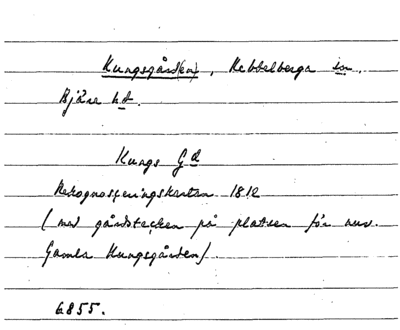 Kungsgård(en), Rebbelberga sn.
Bjäre hd.
Kungs Gd
Rekognosceringskartan 1812
(med gårdstecken på platsen för nuv.
Gamla Kungsgården).
6855.